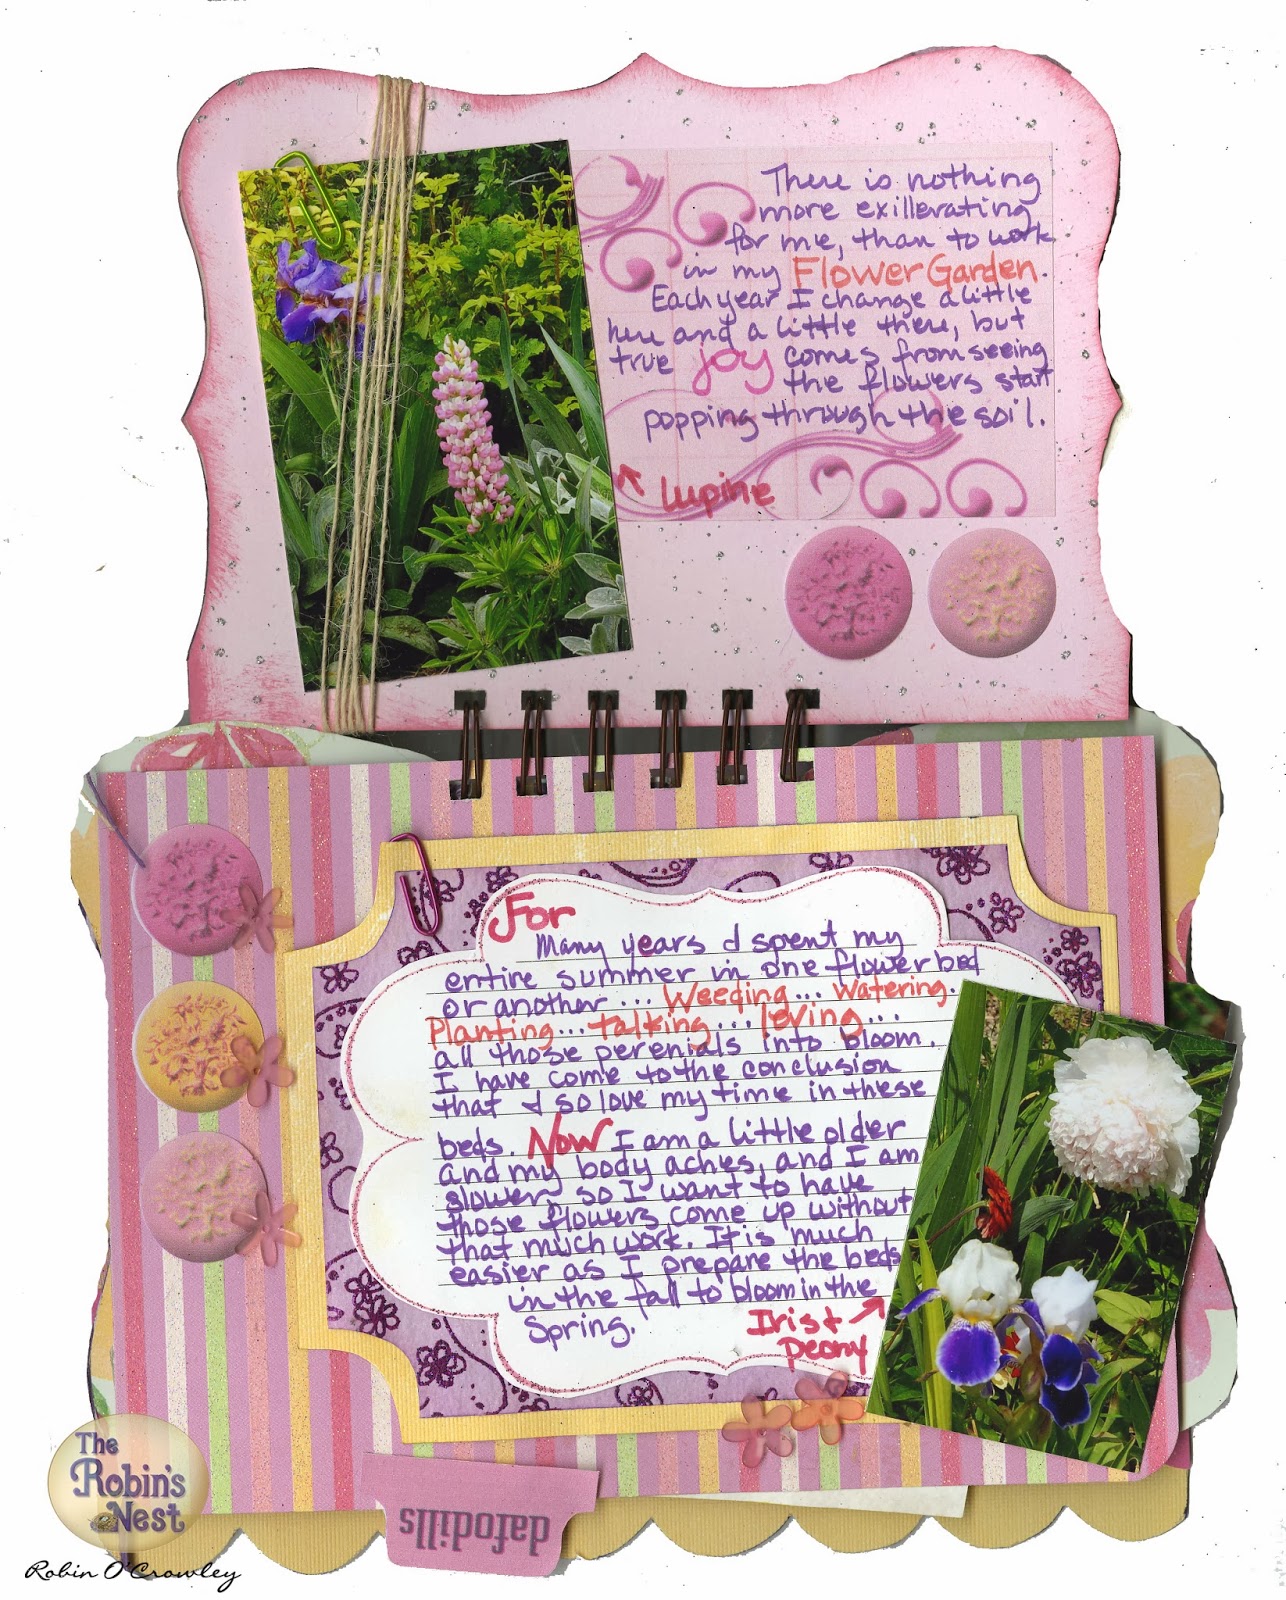 There is nothing
more exillerating
for me, than to work
in my Flower Garden.
Each year I change a little
here and a little there, but
true joy comes from seeing
the flowers start
popping through the soil.
Lupine
For
Many years I spent my
entire summer in one flower bed
or another... Weeding... watering.
Planting... talking... loving...
all those perenials into bloom.
I have come to the conclusion
that I so love my time in these
beds. Now I am a little older
and my body aches, and I am
slower, so I want to have
those flowers come up without
that much work. It is much
easier as I prepare the beds
in the fall to bloom in the
Spring.
Iris +
peony
dafodills
The
Robin's
Nest
Robin O'Crowley